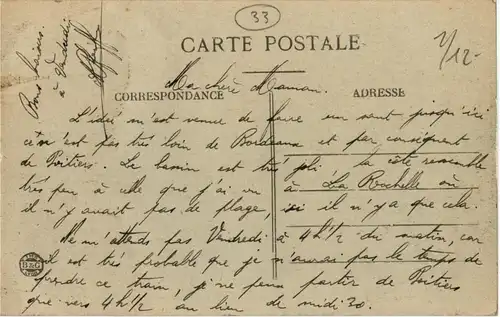 33
CARTE POSTALE
CORRESPONDANCE
ADRESSE
Bons baisers.
à Vendredi
1/12-
Ma chère Maman.
L'idée m'est venue de faire un saut jusqu'ici
ce n'est pas très loin de Bordeaux et par conséquent
de Poitiers. Le bassin est très joli la côte ressemble
très peu à celle que j'ai vu à La Rochelle où
il n'y avait pas de plage, ici il n'y a que cela.
Ne m'attends pas Vendredi à 4h½ du matin, car
il est très probable que je n'aurai pas le temps de
prendre ce train, je ne peux partir de Poitiers
que vers 4h½ au lieu de midi 30.
B&G